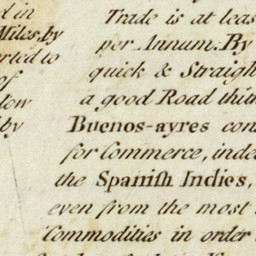 d in
Miles, by
rted to
of
low
by
Trade is at leas
per Annum. By
quick & Straigh
a good Road thith
Buenos-ayres con
for Commerce, inde
the Spaniſh Indies,
even from the most
Commodities in order